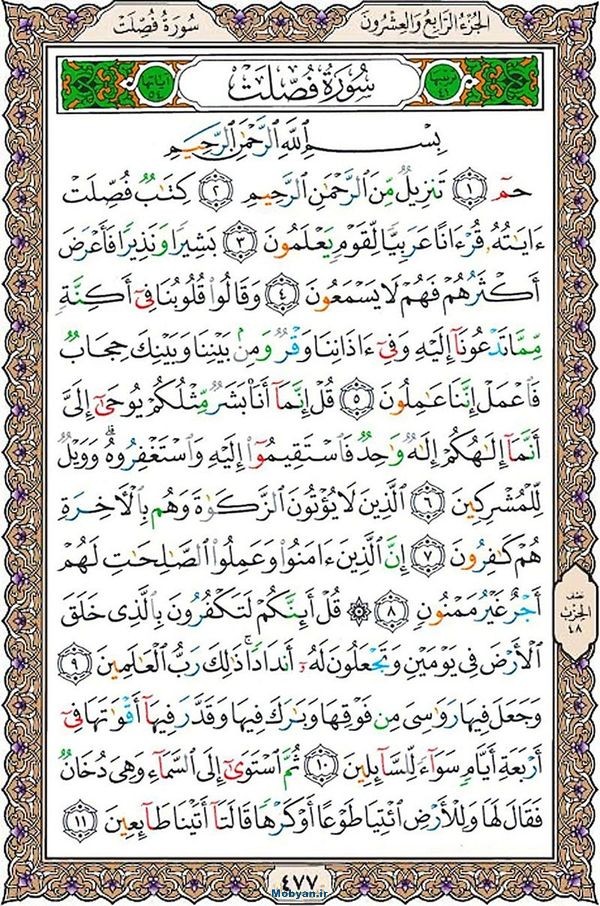 الجُزْءُ الرَّابِعُ وَالعِشْرُونَ
سُورَةُ فُصِّلَتْ
سُورَةُ فُصِّلَتْ
بِسْمِ ٱللَّهِ ٱلرَّحْمَٰنِ ٱلرَّحِيمِ
حمٓ ﴿١﴾ تَنزِيلٌ مِّنَ ٱلرَّحْمَٰنِ ٱلرَّحِيمِ ﴿٢﴾ كِتَٰبٌ فُصِّلَتْ
ءَايَٰتُهُۥ قُرْءَانًا عَرَبِيًّا لِّقَوْمٍ يَعْلَمُونَ ﴿٣﴾ بَشِيرًا وَنَذِيرًا فَأَعْرَضَ
أَكْثَرُهُمْ فَهُمْ لَا يَسْمَعُونَ ﴿٤﴾ وَقَالُوا۟ قُلُوبُنَا فِىٓ أَكِنَّةٍ
مِّمَّا تَدْعُونَآ إِلَيْهِ وَفِىٓ ءَاذَانِنَا وَقْرٌ وَمِنۢ بَيْنِنَا وَبَيْنِكَ حِجَابٌ
فَٱعْمَلْ إِنَّنَا عَٰمِلُونَ ﴿٥﴾ قُلْ إِنَّمَآ أَنَا۠ بَشَرٌ مِّثْلُكُمْ يُوحَىٰٓ إِلَىَّ
أَنَّمَآ إِلَٰهُكُمْ إِلَٰهٌ وَٰحِدٌ فَٱسْتَقِيمُوٓا۟ إِلَيْهِ وَٱسْتَغْفِرُوهُ ۗ وَوَيْلٌ
لِّلْمُشْرِكِينَ ﴿٦﴾ ٱلَّذِينَ لَا يُؤْتُونَ ٱلزَّكَوٰةَ وَهُم بِٱلْـَٔاخِرَةِ
هُمْ كَٰفِرُونَ ﴿٧﴾ إِنَّ ٱلَّذِينَ ءَامَنُوا۟ وَعَمِلُوا۟ ٱلصَّٰلِحَٰتِ لَهُمْ
أَجْرٌ غَيْرُ مَمْنُونٍ ﴿٨﴾ ۞ قُلْ أَئِنَّكُمْ لَتَكْفُرُونَ بِٱلَّذِى خَلَقَ
ٱلْأَرْضَ فِى يَوْمَيْنِ وَتَجْعَلُونَ لَهُۥٓ أَندَادًا ۚ ذَٰلِكَ رَبُّ ٱلْعَٰلَمِينَ ﴿٩﴾
وَجَعَلَ فِيهَا رَوَٰسِىَ مِن فَوْقِهَا وَبَٰرَكَ فِيهَا وَقَدَّرَ فِيهَآ أَقْوَٰتَهَا فِىٓ
أَرْبَعَةِ أَيَّامٍ سَوَآءً لِّلسَّآئِلِينَ ﴿١٠﴾ ثُمَّ ٱسْتَوَىٰٓ إِلَى ٱلسَّمَآءِ وَهِىَ دُخَانٌ
فَقَالَ لَهَا وَلِلْأَرْضِ ٱئْتِيَا طَوْعًا أَوْ كَرْهًا قَالَتَآ أَتَيْنَا طَآئِعِينَ ﴿١١﴾
نصف
الحزب
٤٨
٤٧٧
Mobyan.ir